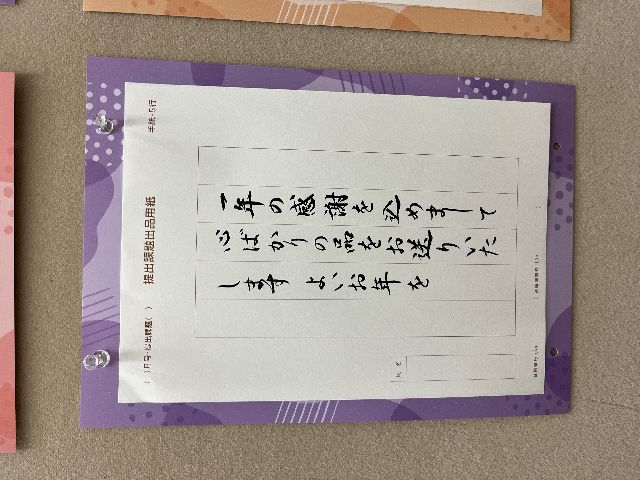 提出課題出品用紙
手紙・5行
一年の感謝を込めまして
心ばかりの品をお送りいた
します よいお年を
氏名